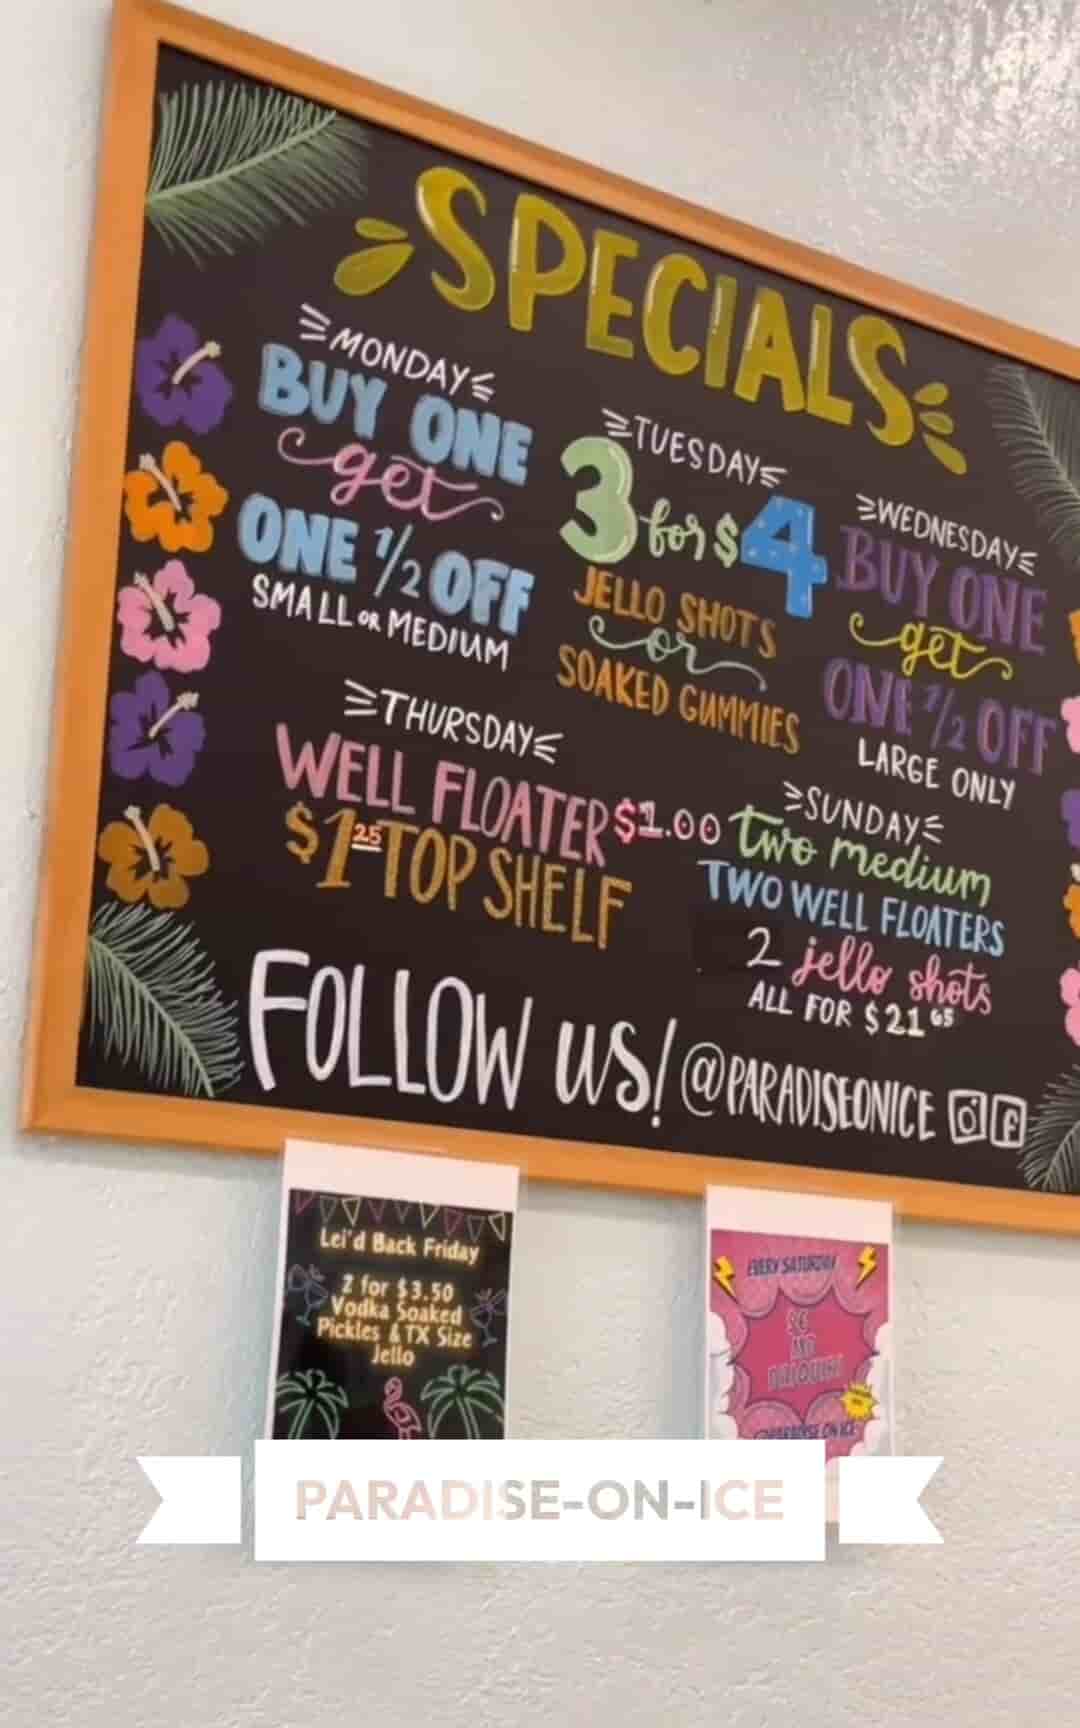 SPECIALS
MONDAY
BUY ONE
get
ONE 1/2 OFF
SMALL OR MEDIUM
TUESDAY
3 for $4
JELLO SHOTS
or
SOAKED GUMMIES
WEDNESDAY
BUY ONE
get
ONE 1/2 OFF
LARGE ONLY
THURSDAY
WELL FLOATER $1.00
$1.25 TOP SHELF
SUNDAY
two medium
TWO WELL FLOATERS
2 jello shots
ALL FOR $21.65
FOLLOW us! @PARADISEONICE
Lei'd Back Friday
2 for $3.50
Vodka Soaked
Pickles & TX Size
Jello
EVERY SATURDAY
PARADISE ON ICE
PARADISE-ON-ICE